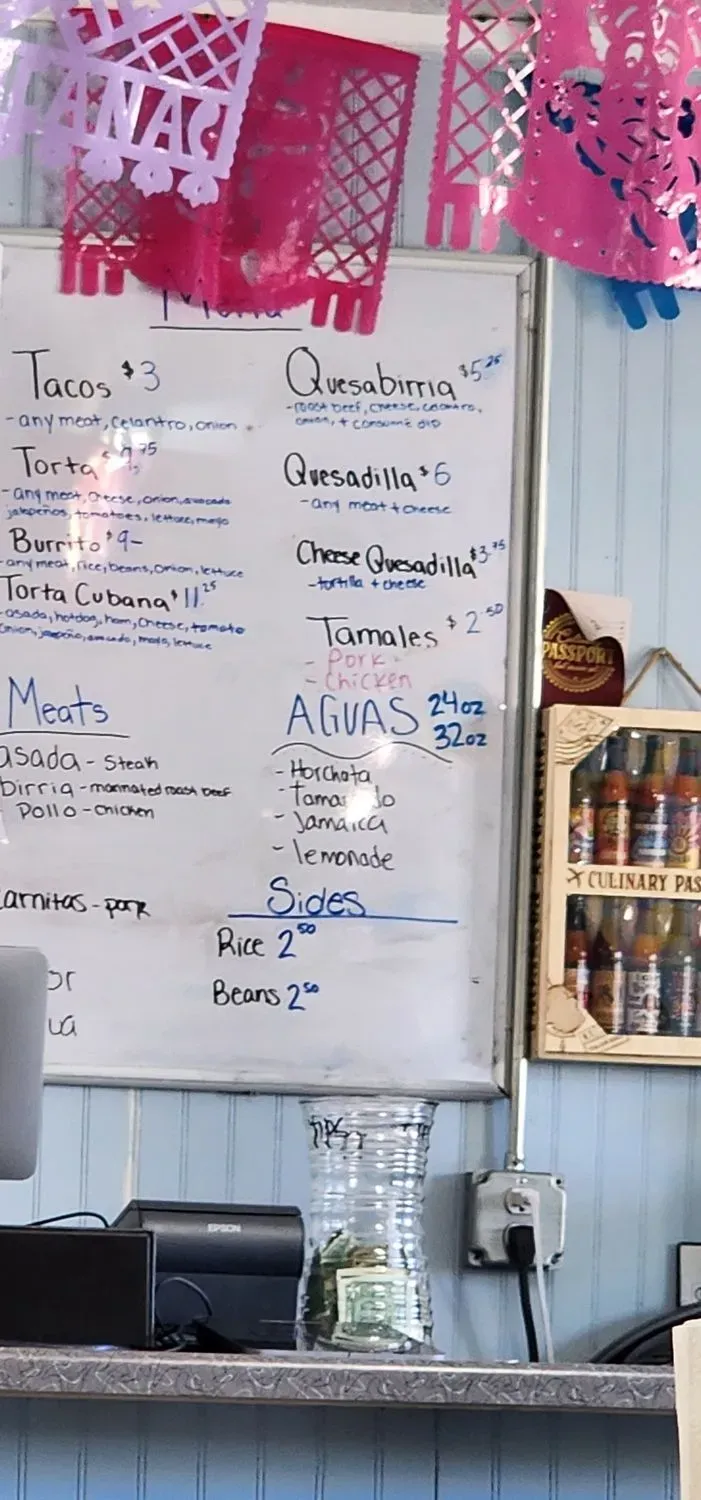 Menu
Tacos $3
- any meat, celantro, onion
Torta $9.75
- any meat, cheese, onion, avocado
jalapeños, tomatoes, lettuce, mayo
Burrito $9-
- any meat, rice, beans, onion, lettuce
Torta Cubana $11.25
- asada, hotdog, ham, cheese, tomato
onion, mayo, lettuce
Meats
asada - Steak
birria - marinated roast beef
Pollo - chicken
carnitas - pork
or
ua
Quesabirria $5.25
- roast beef, cheese, celantro,
onion, + consumé dip
Quesadilla $6
- any meat + cheese
Cheese Quesadilla $3.75
- tortilla + cheese
Tamales $2.50
- Pork
- Chicken
AGUAS 24oz
32oz
- Horchata
- Tamar do
- Jamaica
- lemonade
Sides
Rice 2.50
Beans 2.50
PASSPORT
CULINARY PAS
TIPS
EPSON